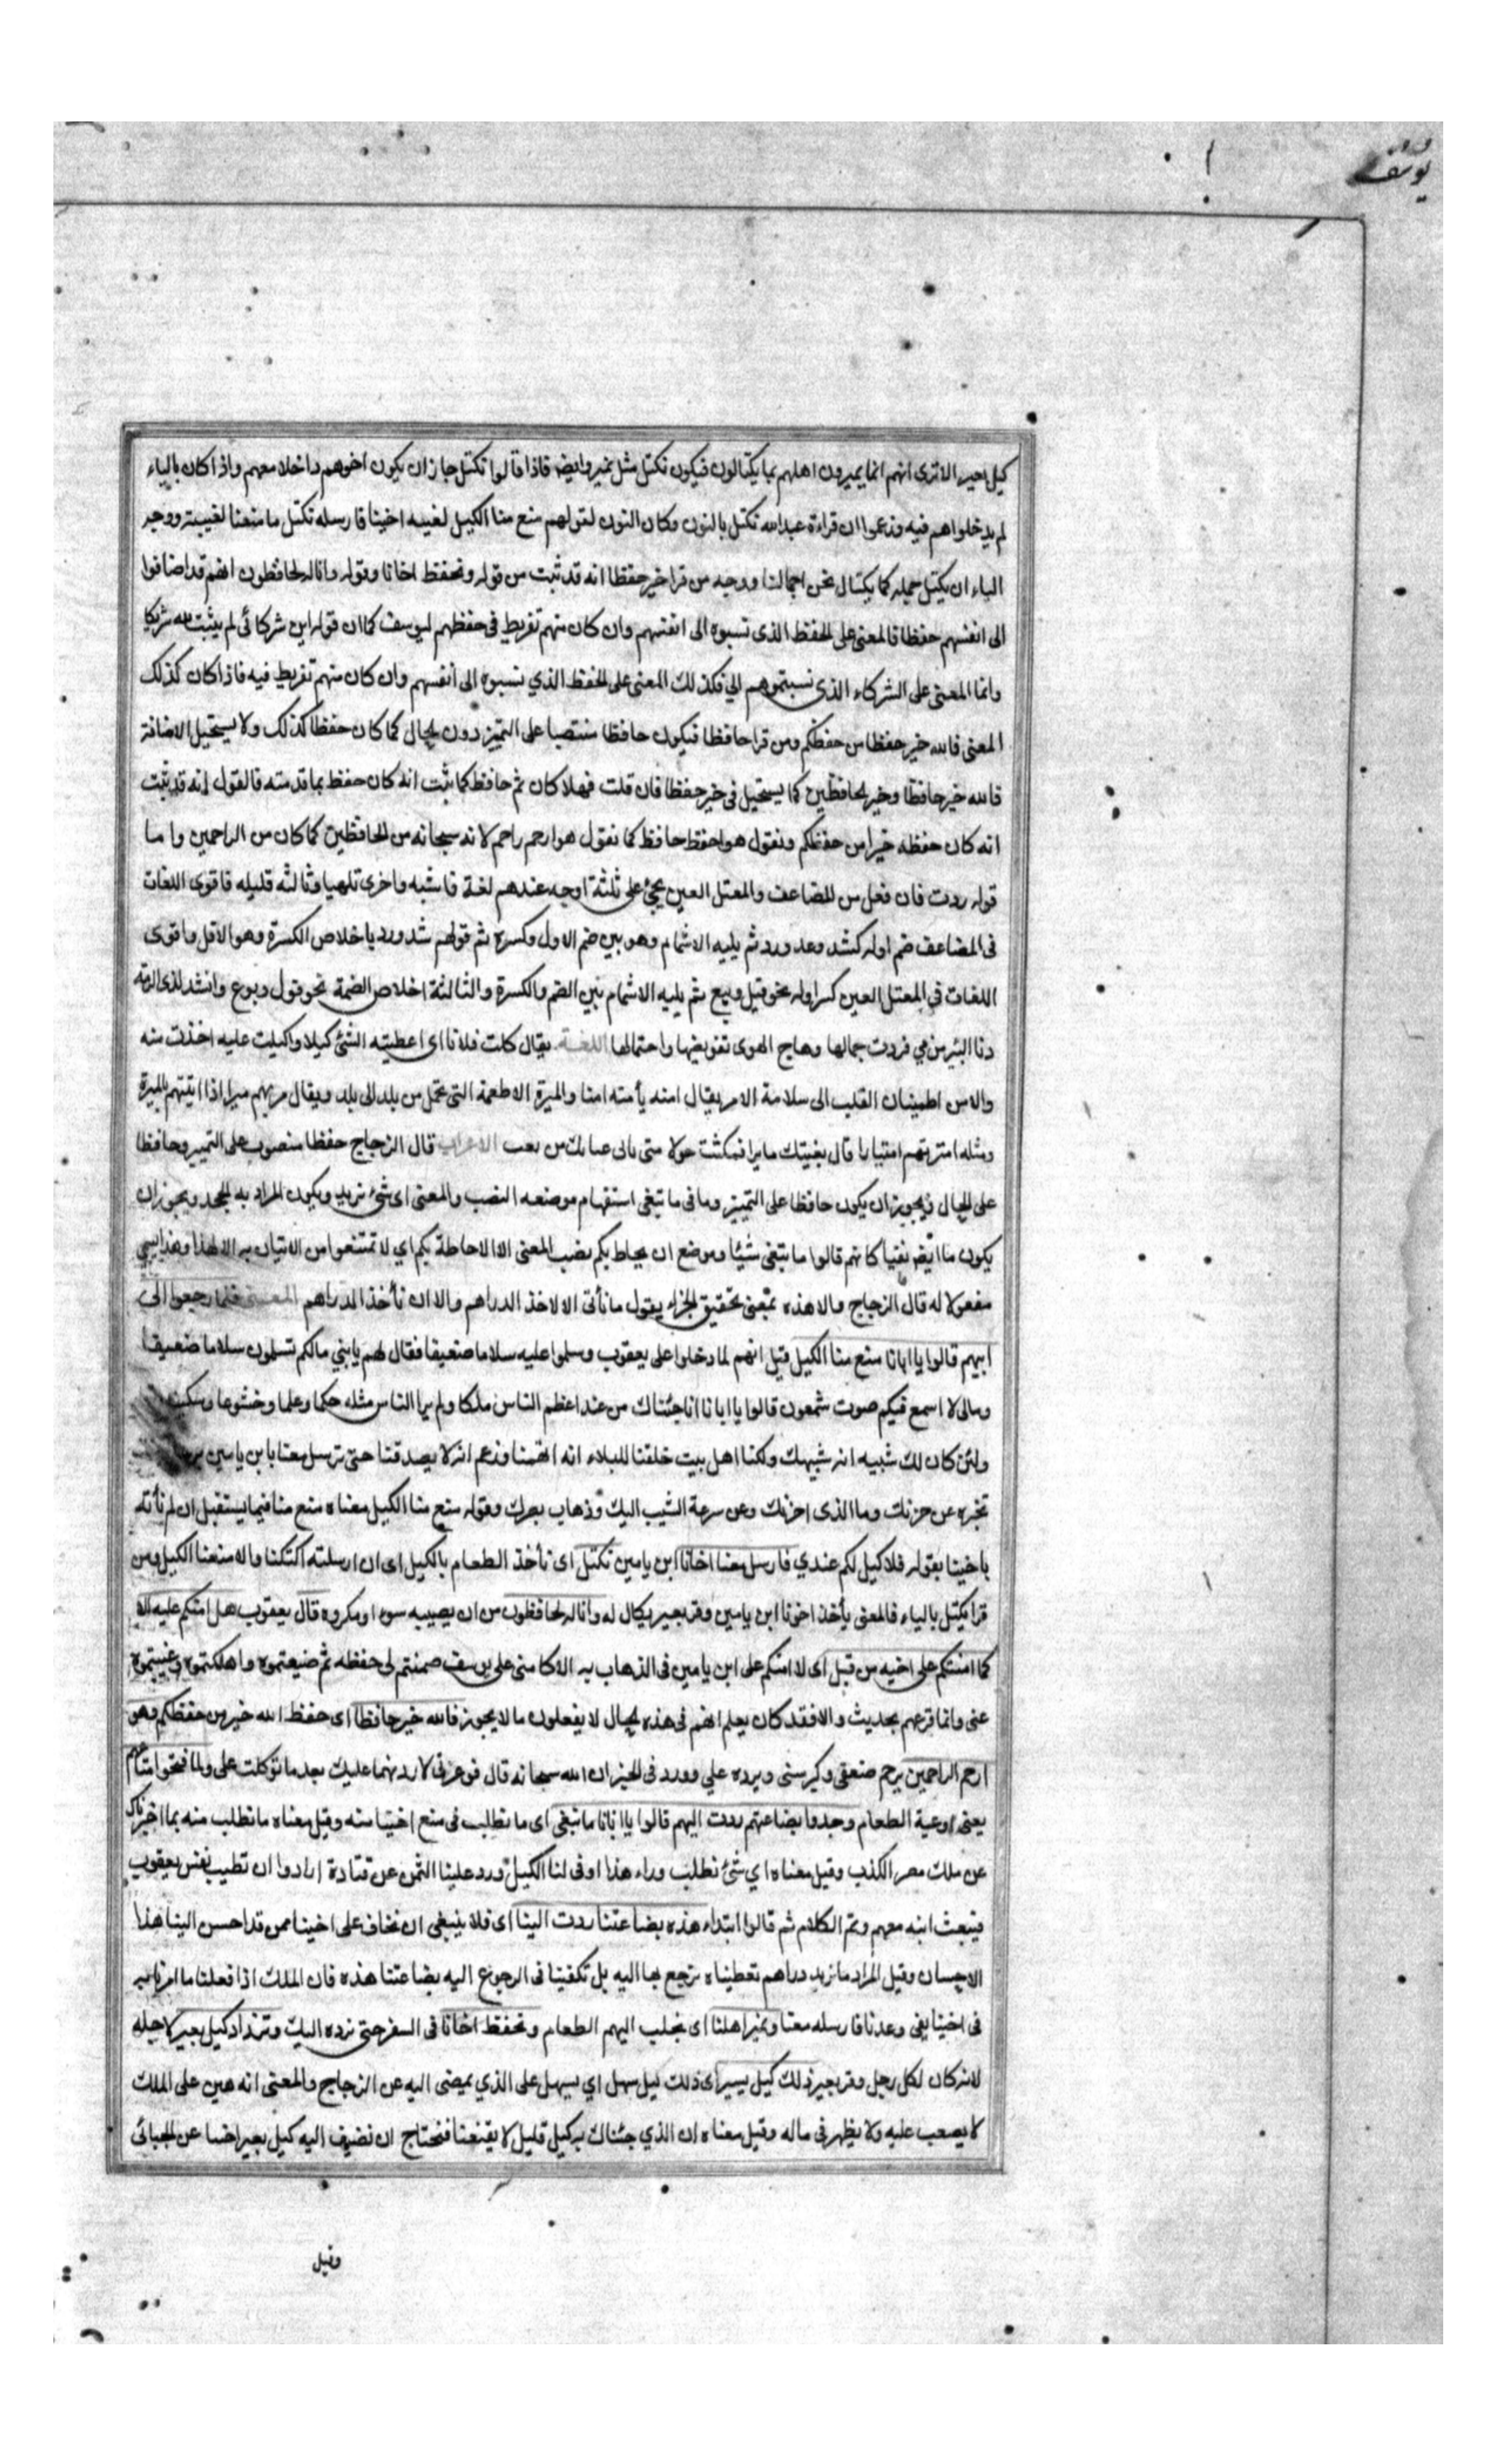 يوسف
كيل بعير الا ترى انهم انما يميرون اهلهم بما يكتالون فيكون نكتل مثل نمير وايضا فاذا قالوا نكتل جاز ان يكون اخوهم داخلا معهم واذا كان بالياء
لم يدخلوا هم فيه وزعموا ان قراءة عبد الله نكتل بالنون وكان النون لقولهم منع منا الكيل لغيبه اخينا فارسله نكتل ما منعنا لغيبته ووجه
الياء ان يكتل حمله كما يكتال نحن احمالنا ووجه من قرا خير حفظا انه قد ثبت من قوله ونحفظ اخانا وقوله وانا له لحافظون انهم قد اضافوا
الى انفسهم حفظا فالمعنى على الحفظ الذى نسبوه الى انفسهم وان كان منهم تفريط فى حفظهم ليوسف كما ان قوله اين شركائى لم يثبت لله شريكا
وانما المعنى على الشركاء الذى نسبتموهم الي فكذلك المعنى على الحفظ الذي نسبوه الى انفسهم وان كان منهم تفريط فيه فاذا كان كذلك
المعنى فالله خير حفظا من حفظكم ومن قرا حافظا فيكون حافظا منتصبا على التمييز دون الحال كما كان حفظا كذلك ولا يستحيل الاضافة
فالله خير حافظا وخير الحافظين كما يستحيل فى خير حفظا فان قلت فهلا كان ثم حافظ كما ثبت انه كان حفظ بما قدمته فالقول انه قد ثبت
انه كان حفظه خيرا من حفظكم ونقول هو احفظ حافظ كما نقول هو ارحم راحم لانه سبحانه من الحافظين كما كان من الراحمين واما
قوله ردت فان فعل من المضاعف والمعتل العين يجئ على ثلثة اوجه عندهم لغة فاشيه واخرى تليها وثالثه قليله فاقوى اللغات
فى المضاعف ضم اوله كشد ومد ورد ثم يليه الاشمام وهو بين ضم الاول وكسره ثم قولهم شد ورد باخلاص الكسرة وهو الاقل واقوى
اللغات فى المعتل العين كسر اوله نحو قيل وبيع ثم يليه الاشمام بين الضم والكسرة والثالثة اخلاص الضمة نحو قول وبوع وانشد لذى الرمه
دنا البين من مي فردت جمالها وهاج الهوى تقويضها واحتمالها اللغة يقال كلت فلانا اى اعطيته الشئ كيلا واكتلت عليه اخذت منه
والامن اطمينان القلب الى سلامة الامر يقال امنه يأمنه امنا والميرة الاطعمة التى تحمل من بلد الى بلد ويقال مرتهم ميرا اذا اتيتهم بالميرة
ومثله امترتهم امتيارا قال بعثتك مايرا فمكثت حولا متى يأتى غياثك من الاعراب قال الزجاج حفظا منصوب على التمييز وحافظا
على الحال ويجوز ان يكون حافظا على التمييز وما فى ما تبغى استفهام موضعه النصب والمعنى اى شئ نريد ويكون المراد به الجحد ويجوز ان
يكون ما ايضا نفيا كانهم قالوا ما نبغى شيئا وموضع ان يحاط بكم نصب المعنى الا الاحاطة بكم اي لا تمتنعوا من الاتيان به الا لهذا وهذا يسمى
مفعولا له قال الزجاج والا هذه بمعنى تحقيق الجزاء يقول ما تأتى الا لاخذ الدراهم والا ان تأخذ الدراهم المعنى فلما رجعوا الى
ابيهم قالوا يا ابانا منع منا الكيل قيل انهم لما دخلوا على يعقوب وسلموا عليه سلاما ضعيفا فقال لهم يا بني مالكم تسلمون سلاما ضعيفا
ومالى لا اسمع فيكم صوت شمعون قالوا يا ابانا انا جئناك من عند اعظم الناس ملكا ولم ير الناس مثله حكما وعلما وخشوعا وسكينة
ولئن كان لك شبيه انه شبيهك ولكنا اهل بيت خلقنا للبلاء انه اتهمنا وزعم انه لا يصدقنا حتى ترسل معنا بابن يامين
تخبره عن حزنك وما الذى احزنك وعن سرعة الشيب اليك وذهاب بصرك وقوله منع منا الكيل معناه منع منا فيما يستقبل ان لم نأته
باخينا بقوله فلا كيل لكم عندي فارسل معنا اخانا ابن يامين نكتل اى نأخذ الطعام بالكيل اى ان ارسلته اكتلنا والا منعنا الكيل ومن
قرا يكتل بالياء فالمعنى يأخذ اخونا ابن يامين وقر بعير يكال له وانا له لحافظون من ان يصيبه سوء او مكروه قال يعقوب هل امنكم عليه الا
كما امنتكم على اخيه من قبل اى لا امنكم على ابن يامين فى الذهاب به الا كامنى على يوسف ضمنتم لى حفظه ثم ضيعتموه واهلكتموه وغيبتموه
عنى وانما قرعهم بحديث والا فقد كان يعلم انهم فى هذه الحال لا يفعلون ما لا يجوز فالله خير حافظا اى حفظ الله خير من حفظكم وهو
ارحم الراحمين يرحم ضعفى وكبر سنى ويرده علي وورد فى الخبر ان الله سبحانه قال فوعزتى لاردنهما عليك بعد ما توكلت على ولما فتحوا متاعهم
يعنى اوعية الطعام وجدوا بضاعتهم ردت اليهم قالوا يا ابانا ما نبغى اى ما نطلب فى منع اخينا منه وقيل معناه ما نطلب منه بما اخبرناك
عن ملك مصر الكذب وقيل معناه اي شئ نطلب وراء هذا اوفى لنا الكيل ورد علينا الثمن عن قتادة ارادوا ان تطيب نفس يعقوب
فيبعث ابنه معهم وتم الكلام ثم قالوا ابتداء هذه بضاعتنا ردت الينا اى فلا ينبغى ان نخاف على اخينا ممن قد احسن الينا هذا
الاحسان وقيل المراد ما نريد دراهم تعطيناه نرجع بها اليه بل تكفينا فى الرجوع اليه بضاعتنا هذه فان الملك اذا فعلنا ما امرنا به
فى اخينا يفى وعدنا فارسله معنا ونمير اهلنا اى نجلب اليهم الطعام ونحفظ اخانا فى السفر حتى نرده اليك ونزداد كيل بعير لاجله
لانه كان لكل رجل وقر بعير ذلك كيل يسير اى ذلك كيل سهل اي يسهل على الذي يمضى اليه عن الزجاج والمعنى انه هين على الملك
لا يصعب عليه ولا يظهر فى ماله وقيل معناه ان الذي جئناك به كيل قليل لا يقنعنا فنحتاج ان نضيف اليه كيل بعير اخينا عن الجبائى
وقيل